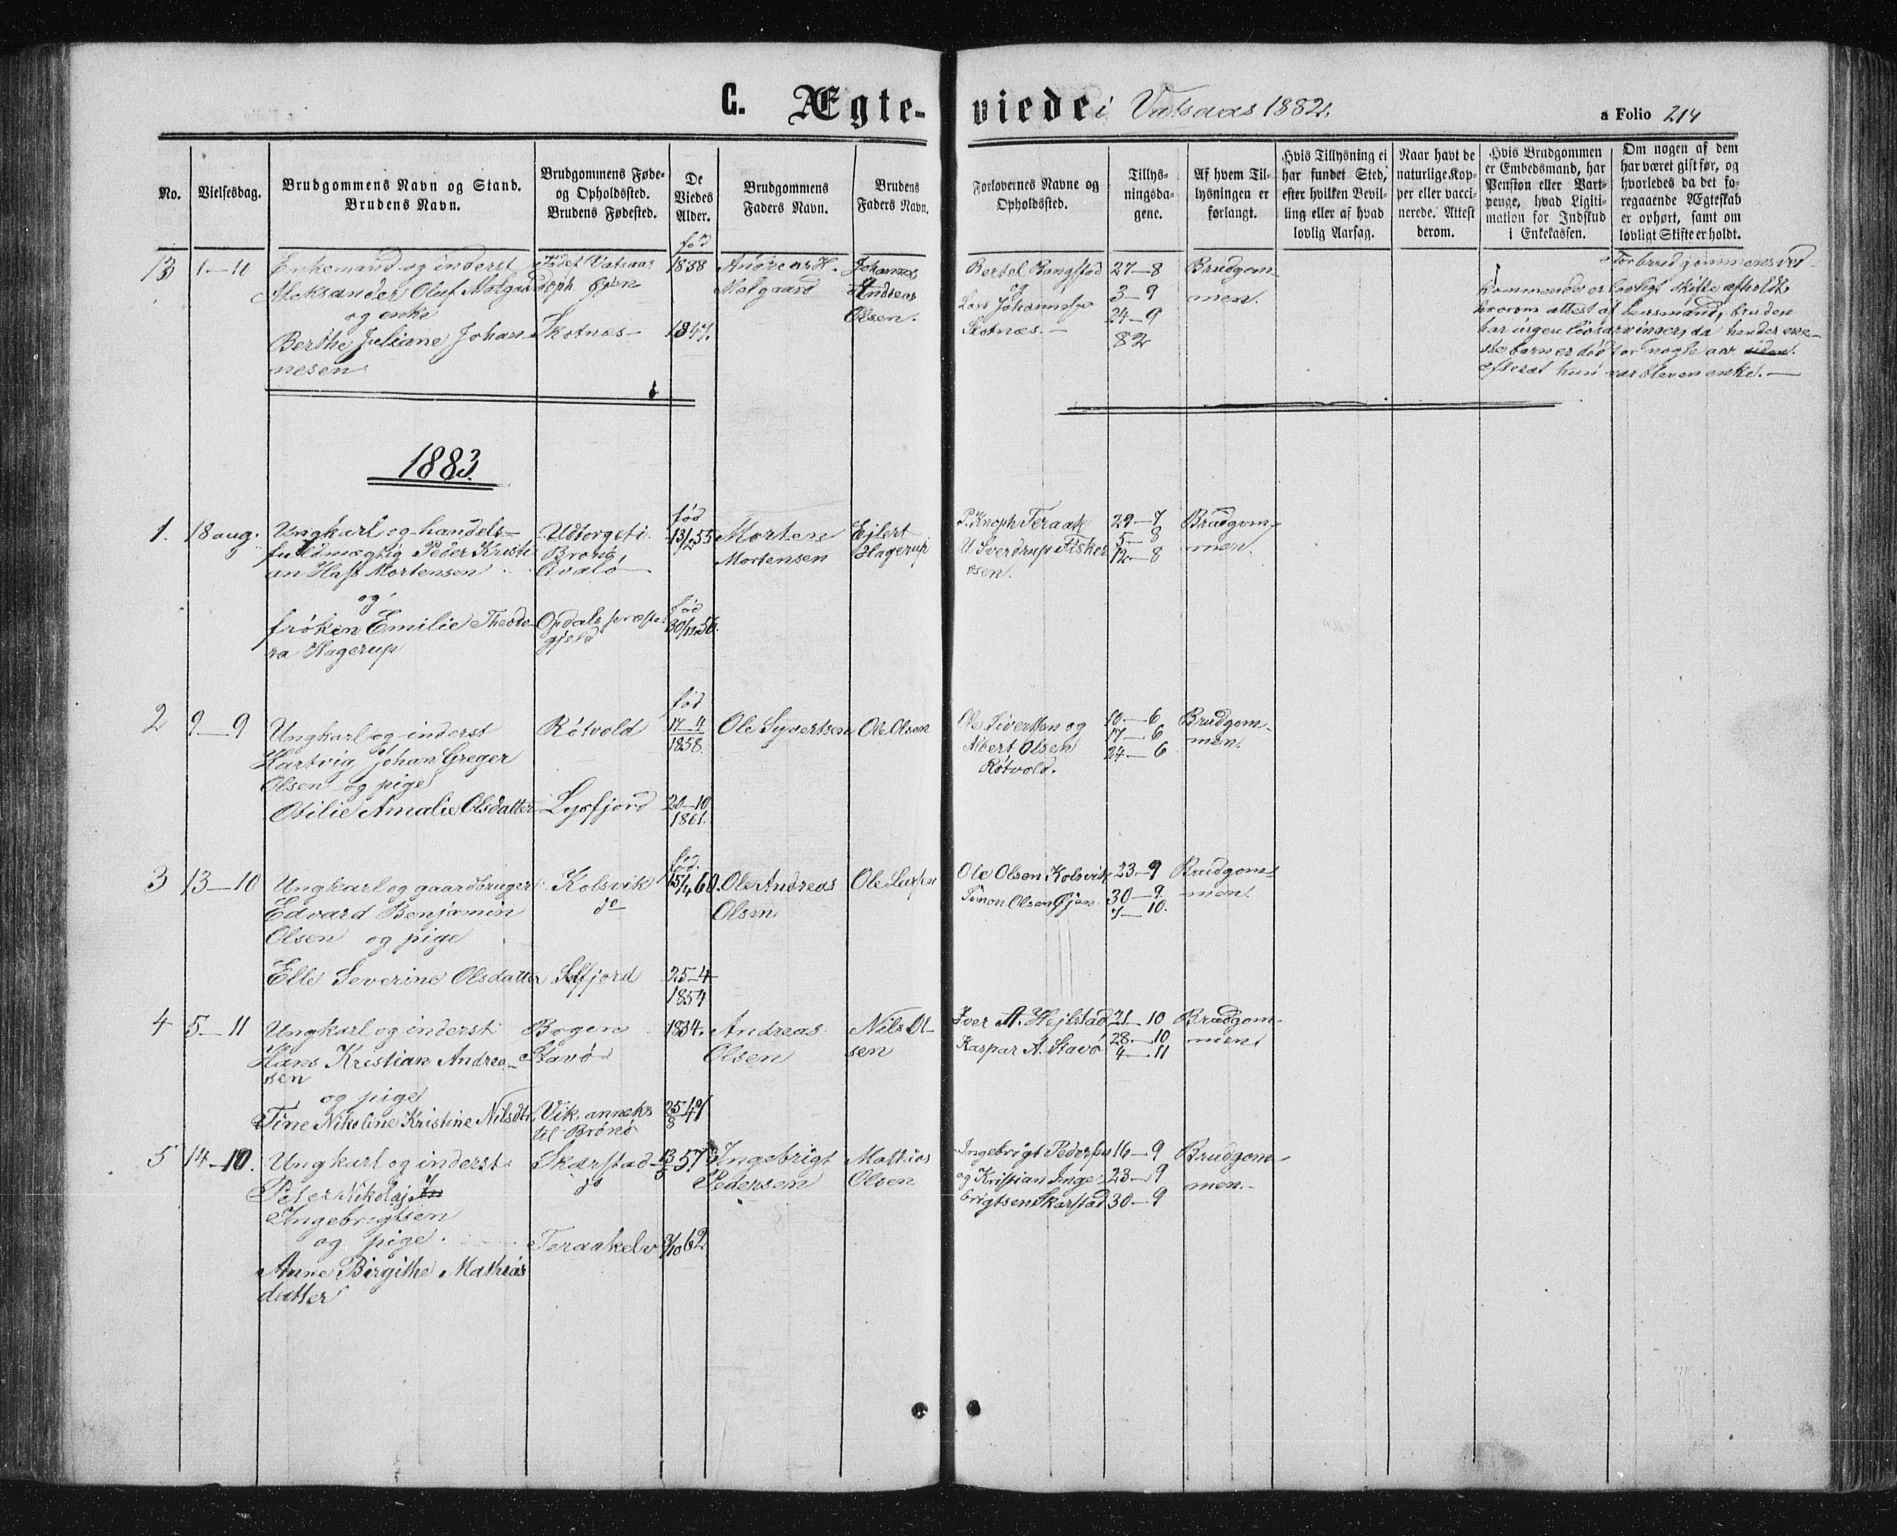 C. Ægte-viede i Vatsaas 1882.
a Folio 214
No.
Vielsesdag.
Brudgommens Navn og Stand.
Brudens Navn.
Brudgommens Føde-
og Opholdssted.
Brudens Fødested.
De
Viedes
Alder.
Brudgommens
Faders Navn.
Brudens
Faders Navn.
Forlovernes Navne og
Opholdssted.
Tillys-
ningsda-
gene.
Af hvem Til-
lysningen er
forlangt.
Hvis Tillysning ei
har fundet Sted,
efter hvilken Bevil-
ling eller af hvad
lovlig Aarsag.
Naar havt de
naturlige Kop-
per eller vacci-
nerede. Attest
derom.
Hvis Brudgommen
er Embedsmand, har
Pension eller Vart-
penge, hvad Ligiti-
mation for Indskud
i Enkekassen.
Om nogen af dem
har været gift før, og
hvorledes da det fo-
regaaende Ægteskab
er ophørt, samt om
lovligt Skifte er holdt.
13
1–10
Enkemand og inderst
Aleksander Oluf Molgaard
og enke
Berthe Juliane Johan-
nesen
Født Vatsaas
oph. Gjøn
Skotnæs
fød
1838
1847.
Andreas H.
Molgaard
Johannes
Andreas
Olsen.
Bertel Rangstad
og
Lars Johannesen
Skotnæs.
27–8
3–9
24–9
82
Brudgom-
men.
For brudgommens ved-
kommende er lovligt skifte afholdt
hvorom attest af lensmand, bruden
har ingen livsarvinger, da hendes ene-
ste barn er død for nogle aar siden
efterat hun var bleven enke.
1883
1.
18 aug.
Ungkarl og handels-
fuldmægtig Peder Kristi-
an Hass Mortensen
og
frøken Emilie Theodo-
ra Hagerup
Udtorget i
Brønø,
Kvalø
Opdals præste-
gjeld
fød
13/2 55
fød
30/12 56.
Morten
Mortensen
Ejlert
Hagerup
P. Knoph Teraak
U Sverdrup Fisker
osen.
29–7
5–8
12–8
Brudgom-
men.
2
9–9
Ungkarl og inderst
Hartvig Johan Greger
Olsen og pige
Otilie Amalie Olsdatter
Røtvold
Lysfjord
fød
17–11
1858.
20–10
1861.
Ole Syvertsen
Ole Olsen
Ole Sivertsen og
Albert Olsen
Røtvold.
10–6
17–6
24–6
Brudgom-
men.
3
13–10
Ungkarl og gaardbruger
Edvard Benjamin
Olsen og pige
Elle Severine Olsdatter
Kolsvik
do
Selfjord
fød.
15/4 60.
25–4
1854
Ole Andreas
Olsen
Ole Larsen
Ole Olsen Kolsvik
Simon Olsen Gjøn
23–9
30–9
7–10.
Brudgom-
men.
4
5–11
Ungkarl og inderst
Hans Kristian Andrea-
sen
og pige
Tine Nikoline Kristine Nilsdtr.
Bogen
Stavø
Vik, anneks
til Brønø
1834.
25/8 47
Andreas
Olsen
Nils Ol-
sen
Iver A. Hejlstad
Kaspar A. Stavø
21–10
28–10
4–11
Brudgom-
men
5
14–10.
Ungkarl og inderst
Peter Nikolaj In
Ingebrigtsen
og pige
Anne Birgithe Mathias
datter
Skarstad
do
Teraakelv
13/5 57
3/10 62
Ingebrigt
Pedersen
Mathias
Olsen
Ingebrigt Pedersen
og Kristian Inge-
brigtsen Skarstad
16–9
23–9
30–9
Brudgom-
men.